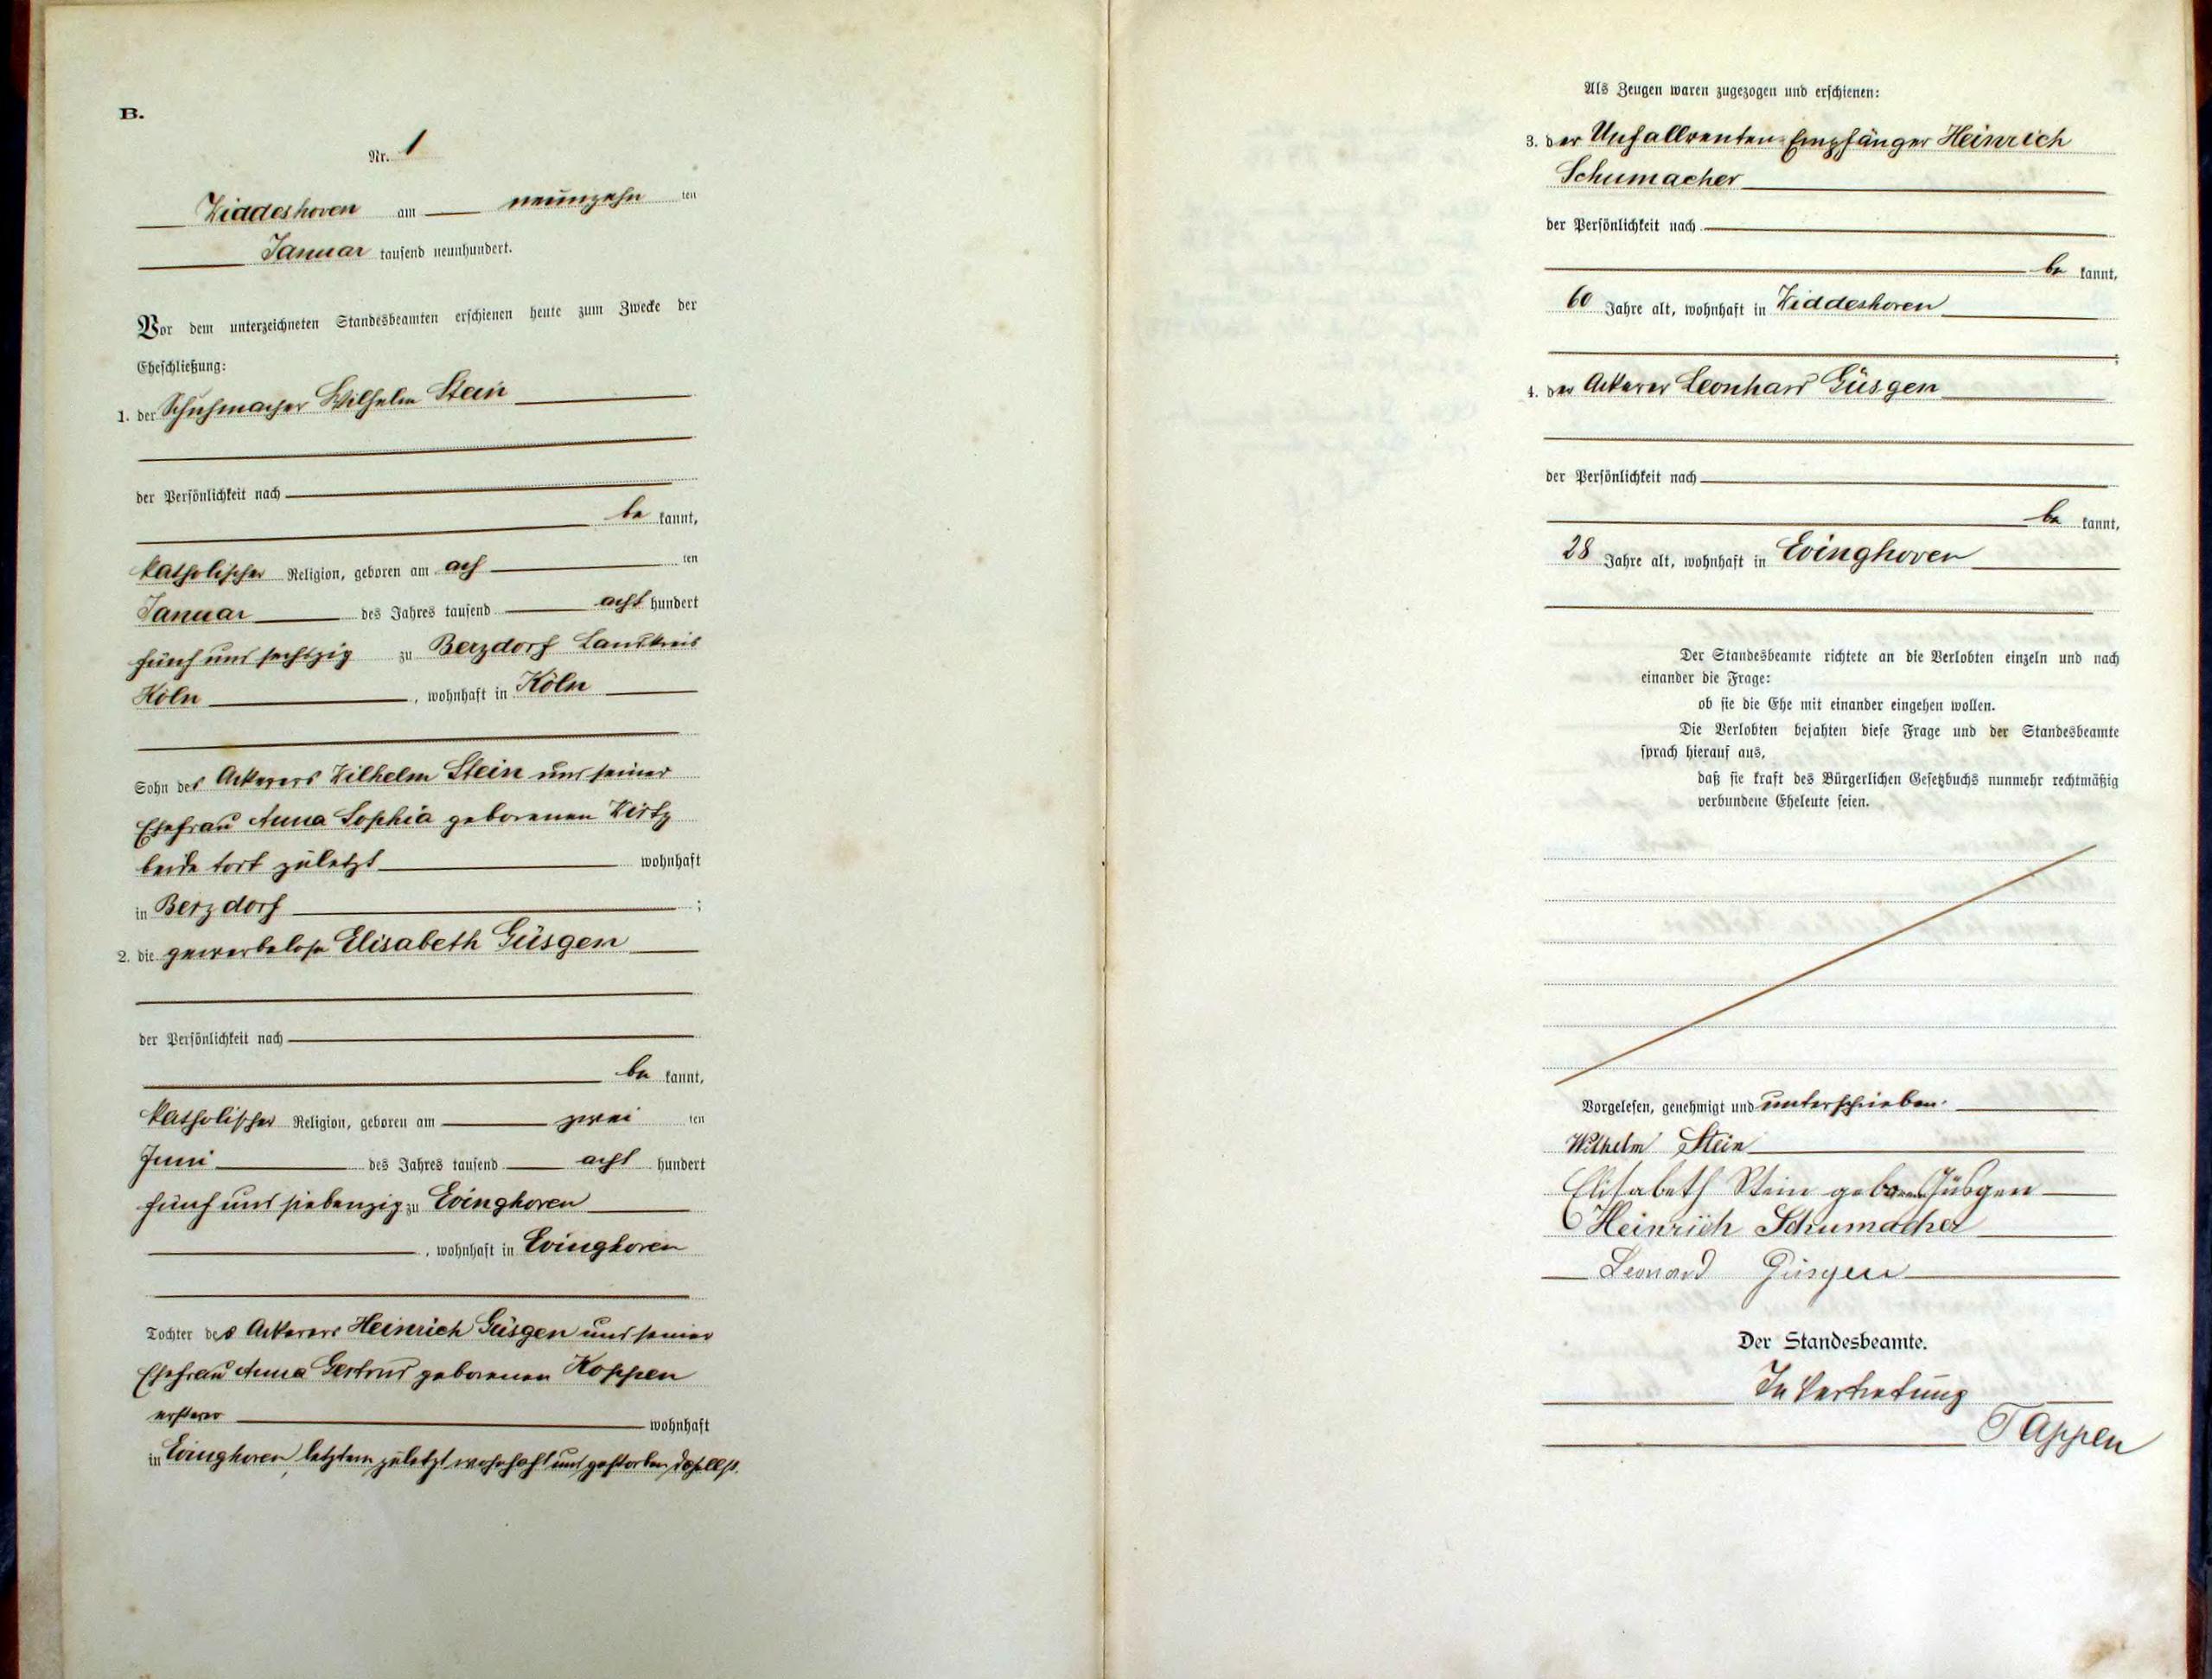 B.
Nr. 1
Widdeshoven am neunzehn ten
Januar tausend neunhundert.
Vor dem unterzeichneten Standesbeamten erschienen heute zum Zwecke der
Eheschließung:
1. der Schuhmacher Wilhelm Stein
der Persönlichkeit nach
be kannt,
katholischer Religion, geboren am ach ten
Januar des Jahres tausend acht hundert
fünf und sechszig zu Berzdorf Landkreis
Köln, wohnhaft in Köln
Sohn des Ackerers Wilhelm Stein und seiner
Ehefrau Anna Sophia geborenen Wirtz
beide tort zuletzt wohnhaft
in Berzdorf ;
2. die gewerbelose Elisabeth Güsgen
der Persönlichkeit nach
be kannt,
katholischer Religion, geboren am zwei ten
Juni des Jahres tausend acht hundert
fünf und siebenzig zu Evinghoven
, wohnhaft in Evinghoven
Tochter des Ackerers Heinrich Güsgen und seiner
Ehefrau Anna Gertrud geborenen Koppen
ersterer wohnhaft
in Evinghoven letztere zuletzt wohnhaft und gestorben daselbst.
Als Zeugen waren zugezogen und erschienen:
3. der Unfallrenten-Empfänger Heinrich
Schumacher
der Persönlichkeit nach
be kannt,
60 Jahre alt, wohnhaft in Widdeshoven
;
4. der Ackerer Leonhard Güsgen
der Persönlichkeit nach
be kannt,
28 Jahre alt, wohnhaft in Evinghoven
Der Standesbeamte richtete an die Verlobten einzeln und nach
einander die Frage:
ob sie die Ehe mit einander eingehen wollen.
Die Verlobten bejahten diese Frage und der Standesbeamte
sprach hierauf aus,
daß sie kraft des Bürgerlichen Gesetzbuchs nunmehr rechtmäßig
verbundene Eheleute seien.
Vorgelesen, genehmigt und unterschrieben.
Wilhelm Stein
Elisabeth Stein geborene Güsgen
Heinrich Schumacher
Leonard Güsgen
Der Standesbeamte.
In Vertretung
Tappen